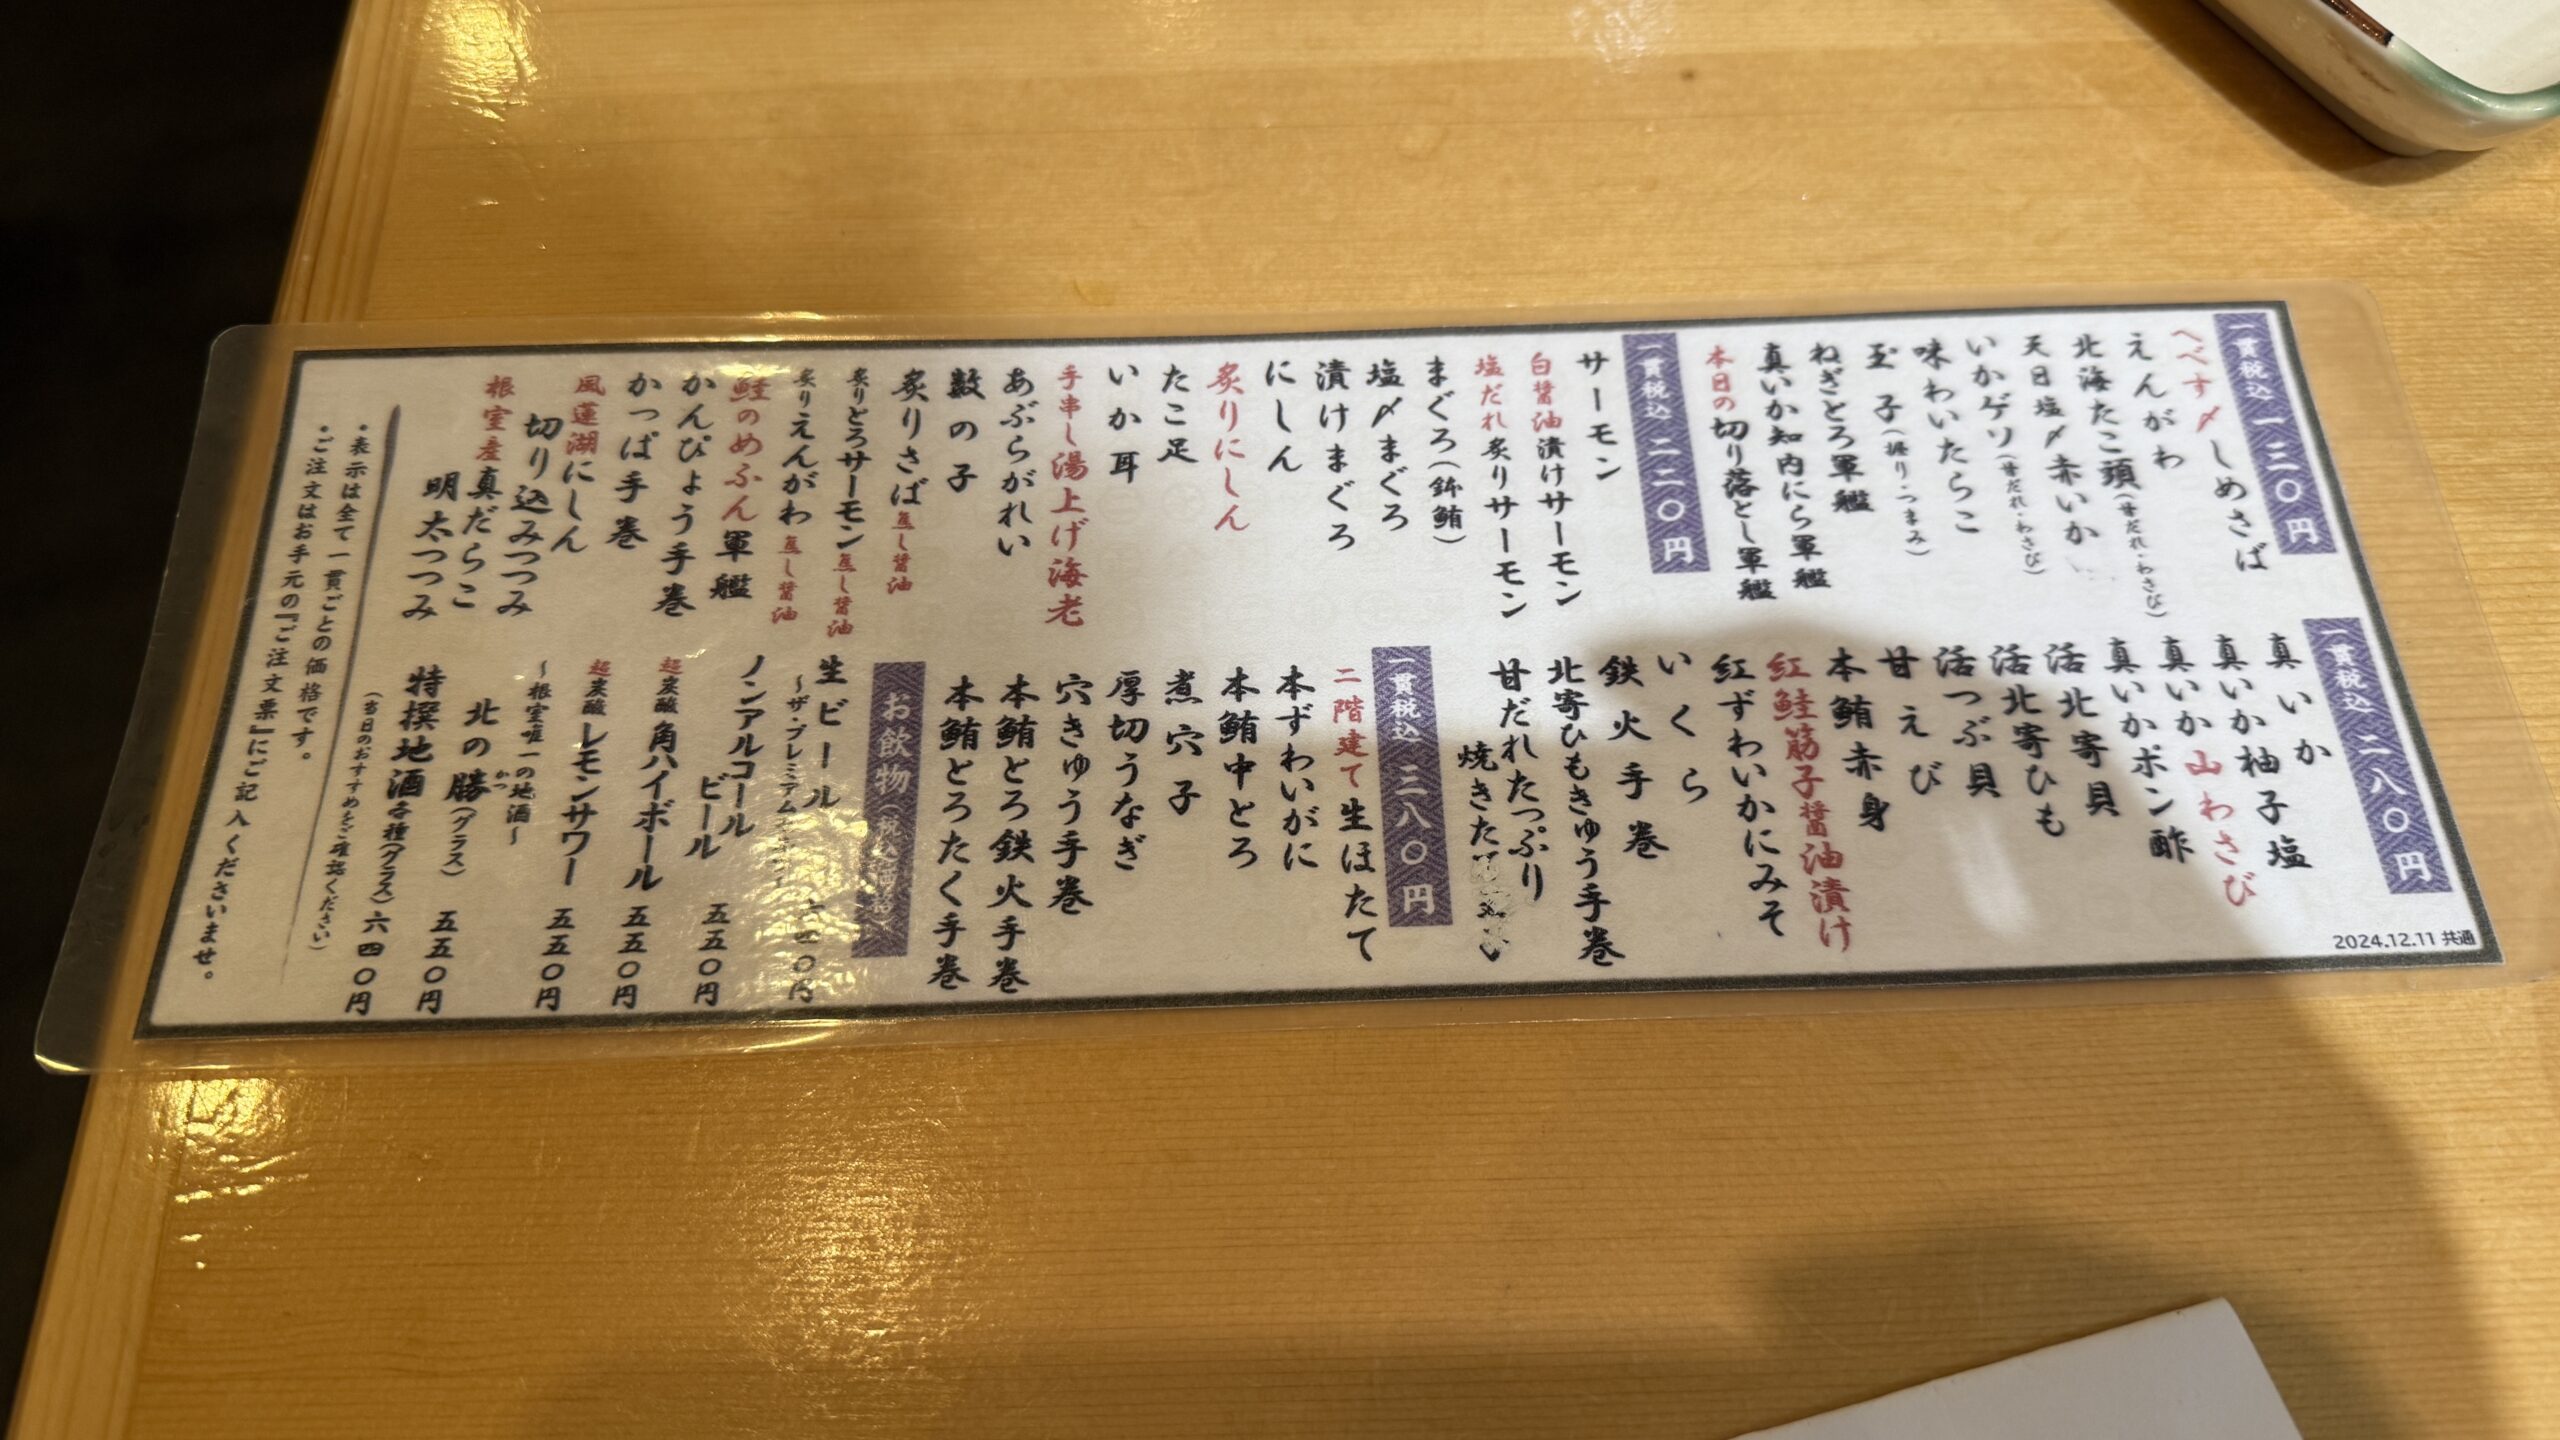 一貫税込 一二〇円
へべす〆しめさば
えんがわ
北海たこ頭(甘だれ・わさび)
天日塩〆赤いか
いかゲソ(甘だれ・わさび)
味わいたらこ
玉子(握り・つまみ)
ねぎとろ軍艦
真いか知内にら軍艦
本日の切り落とし軍艦
一貫税込 二二〇円
サーモン
白醤油漬けサーモン
塩だれ炙りサーモン
まぐろ(鉢鮪)
塩〆まぐろ
漬けまぐろ
にしん
炙りにしん
たこ足
いか耳
手串し湯上げ海老
あぶらがれい
数の子
炙りさば 焦し醤油
炙りとろサーモン 焦し醤油
炙りえんがわ 焦し醤油
鮭のめふん軍艦
かんぴょう手巻
かっぱ手巻
風蓮湖にしん
切り込みつつみ
根室産真だらこ
明太つつみ
一貫税込 二八〇円
真いか
真いか柚子塩
真いか山わさび
真いかポン酢
活北寄貝
活北寄ひも
活つぶ貝
甘えび
本鮪赤身
紅鮭筋子醤油漬け
紅ずわいかにみそ
いくら
鉄火手巻
北寄ひもきゅう手巻
甘だれたっぷり
焼きた
一貫税込 三八〇円
二階建て生ほたて
本ずわいがに
本鮪中とろ
煮穴子
厚切うなぎ
穴きゅう手巻
本鮪とろ鉄火手巻
本鮪とろたく手巻
お飲物(税込価格)
生ビール 六四〇円
〜ザ・プレミアム
ノンアルコール
ビール 五五〇円
超炭酸 角ハイボール 五五〇円
超炭酸 レモンサワー 五五〇円
〜根室唯一の地酒〜
北の勝(グラス) 五五〇円
かつ
特撰地酒各種(グラス) 六四〇円
(当日のおすすめをご確認ください)
・表示は全て一貫ごとの価格です。
・ご注文はお手元の『ご注文票』にご記入くださいませ。
2024.12.11 共通